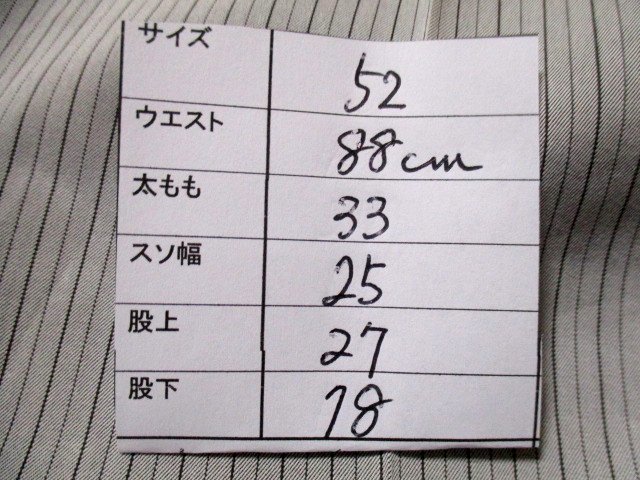 サイズ 52
ウエスト 88cm
太もも 33
スソ幅 25
股上 27
股下 78